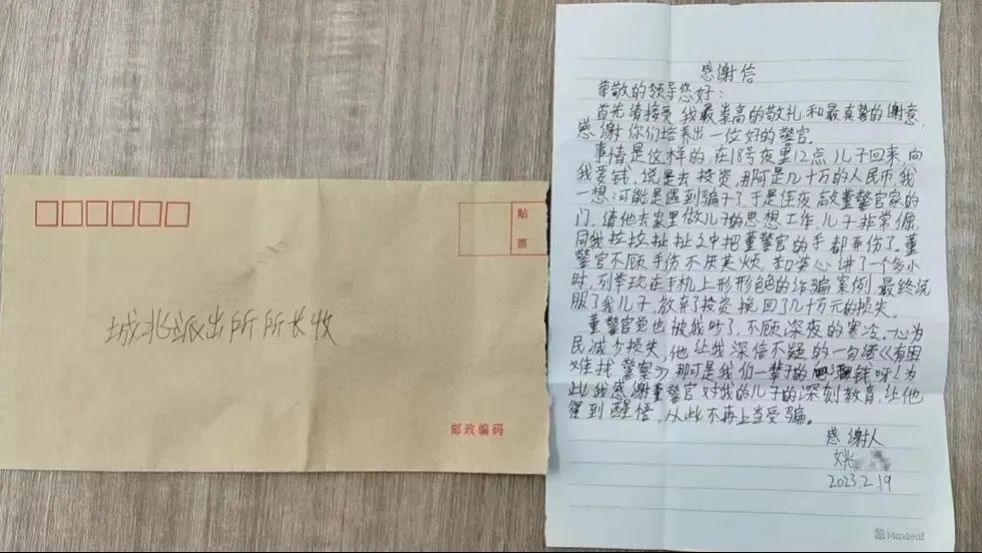 贴
票
城北派出所所长收
邮政编码
感谢信
尊敬的领导您好：
首先请接受我最崇高的敬礼和最真挚的谢意,
感谢你们培养出一位好的警官。
事情是这样的,在18号夜里12点,儿子回来,向
我要钱,说是去投资,那可是几十万的人民币,我
一想,可能是遇到骗子了,于是连夜敲董警官家的
门,请他去家里做儿子的思想工作,儿子非常倔,
同我拉拉扯扯之中把董警官的手都弄伤了。董
警官不顾手伤不厌其烦,苦口婆心讲了一个多小
时,列举现在手机上形形色色的诈骗案例,最终说
服了我儿子,放弃了投资挽回了几十万元的损失。
董警官觉也被我吵了,不顾深夜的寒冷,一心为
民减少损失,他让我深信不疑的一句话《有困
难找警察》那可是我们一辈子的钱呀!为
此我感谢董警官对我的儿子的深刻教育,让他
得到醒悟,从此不再上当受骗。
感谢人
姚
2023.2.19
Maxleaf